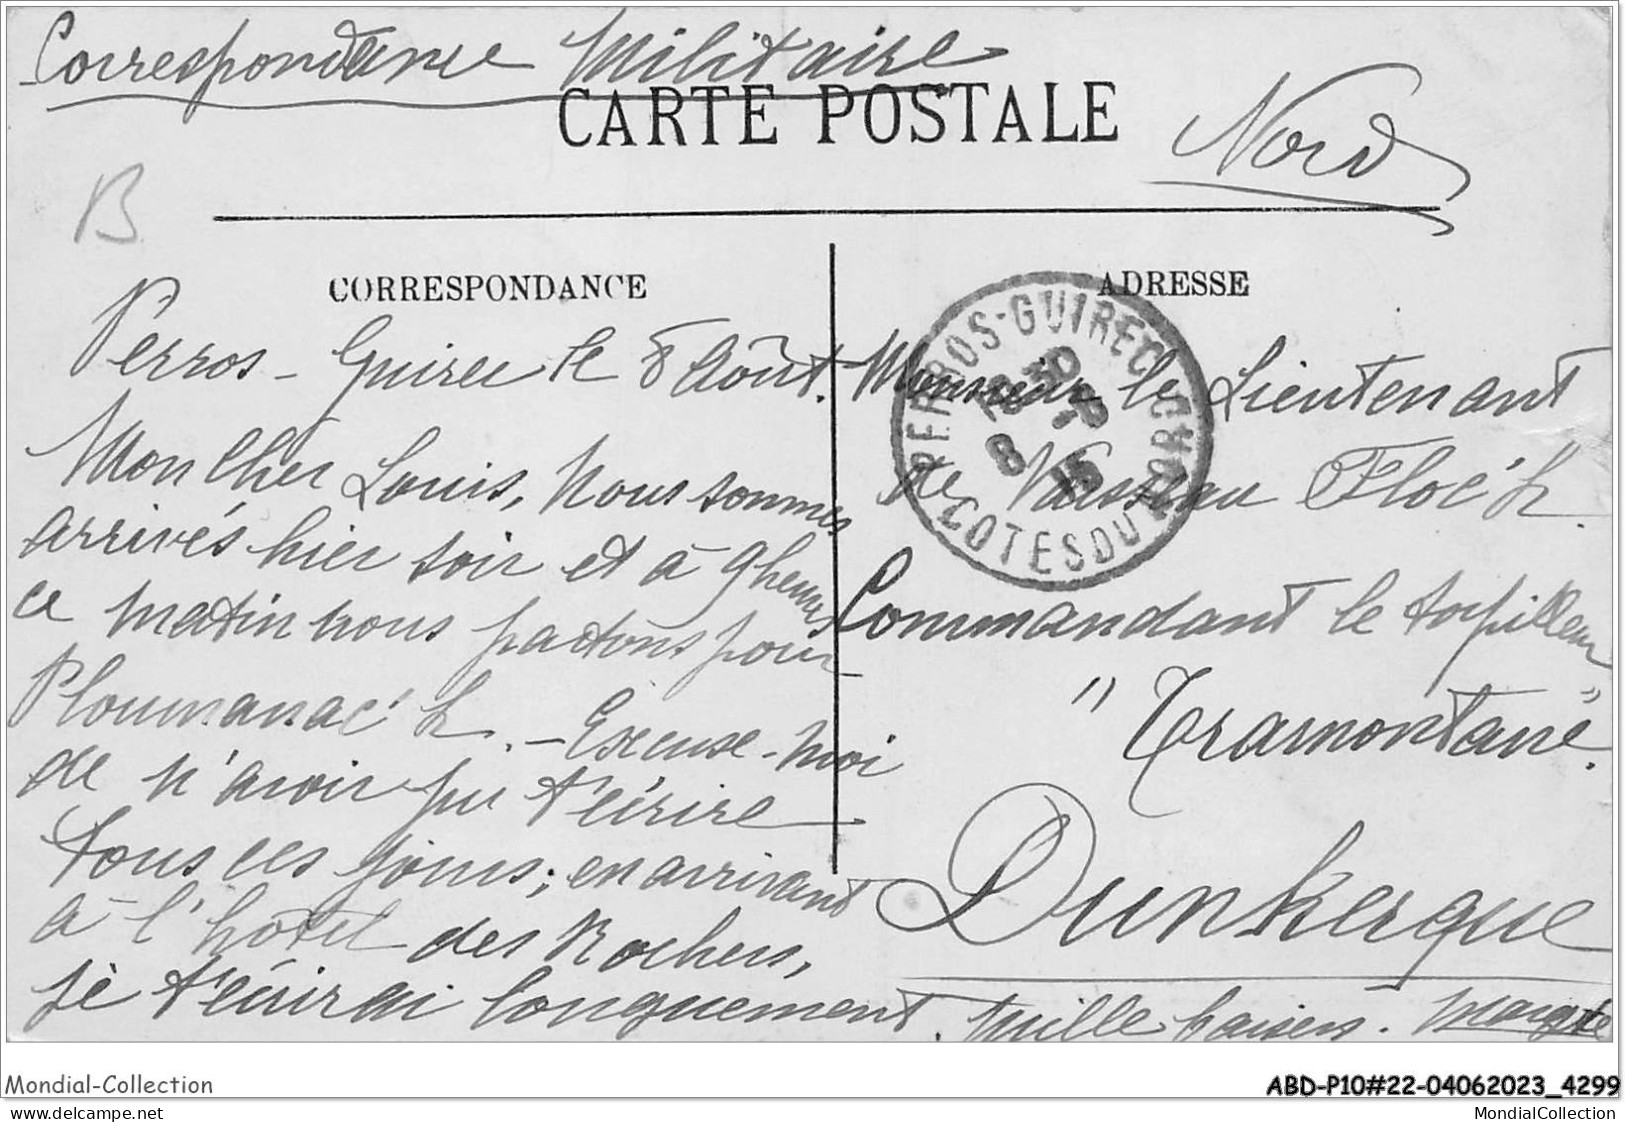 Correspondance Militaire
CARTE POSTALE
Nord
B
CORRESPONDANCE
Perros-Guirec le 8 Août.
Mon Cher Louis, Nous sommes
arrivés hier soir et à 9 heures
ce matin nous partons pour
Ploumanac'h. - Excuse-moi
de n'avoir pu t'écrire
tous ces jours; en arrivant
à l'hôtel des Rochers,
je t'écrirai longuement. Mille baisers. Margte
ADRESSE
PERROS-GUIREC
COTES DU NORD
Monsieur le Lieutenant
de Vaisseau Floc'h
Commandant le torpilleur
"Tramontane".
Dunkerque
Mondial-Collection
ABD-P10#22-04062023_4299
delcampe.net
MondialCollection